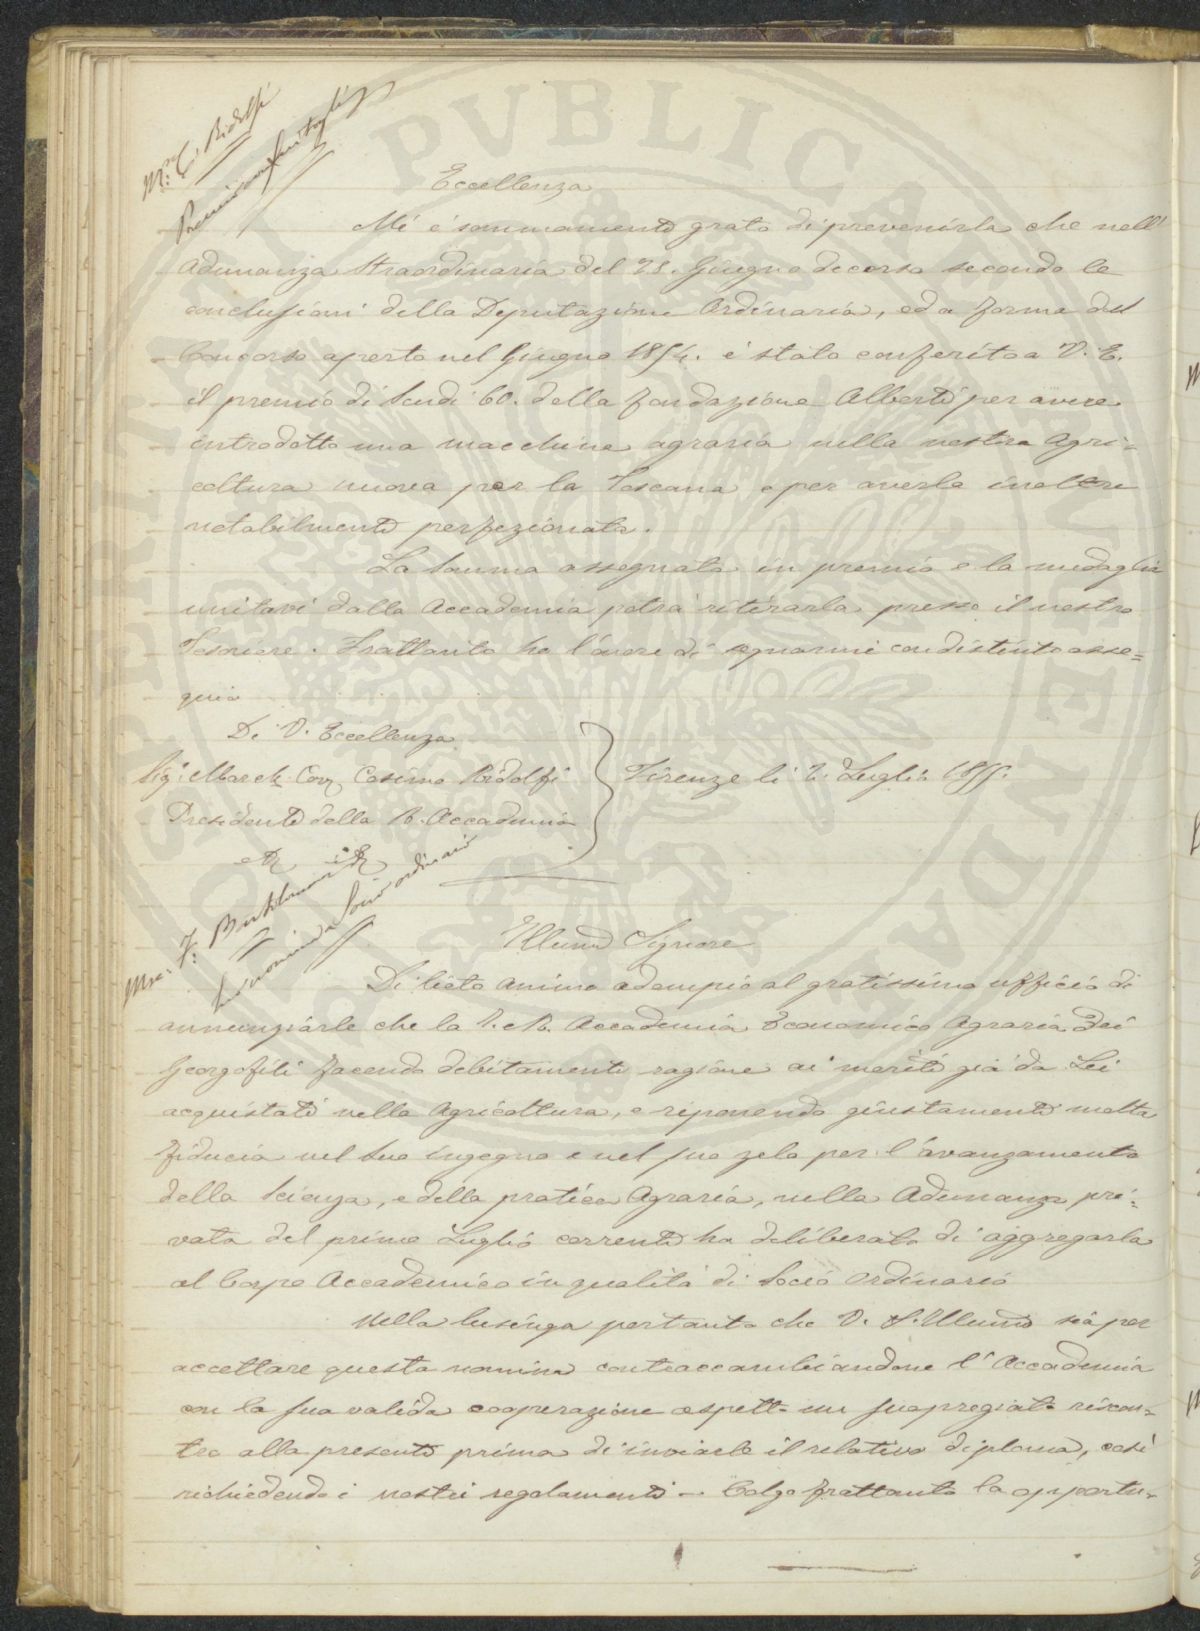 Mse: C. Ridolfi
Premio con medaglia
Eccellenza
Mi è sommamente grato di prevenirla che nell'
Adunanza Straordinaria del 28. Giugno decorso secondo le
conclusioni della Deputazione Ordinaria, ed a forma del
Concorso aperto nel Giugno 1854. è stato conferito a V. E.
il premio di Scudi 60. della fondazione Alberti per avere
introdotto una macchina agraria nella nostra Agri-
coltura nuova per la Toscana e per averla inoltre
notabilmente perfezionata.
La Somma assegnata in premio e la medaglia
unitavi dalla Accademia potrà ritirarla presso il nostro
Tesoriere. Frattanto ho l'onore di segnarmi con distinto osse-
quio
Di V. Eccellenza
Sig: March. Cav. Cosimo Ridolfi
Presidente della R. Accademia
Firenze li 2. Luglio 1855.
Mse: F. Bartolommei
Sua nomina a Socio ordinario
Illmo Signore
Di lieto animo adempio al gratissimo ufficio di
annunziarle che la I. e R. Accademia Economico Agraria Dei
Georgofili facendo debitamente ragione ai meriti già da Lei
acquistati nella Agricoltura, e riponendo giustamente molta
fiducia nel Suo ingegno e nel suo zelo per l'avanzamento
della Scienza, e della pratica Agraria, nella Adunanza pri-
vata del primo Luglio corrente ha deliberato di aggregarla
al Corpo Accademico in qualità di Socio Ordinario
Nella lusinga pertanto che V. S. Illma sia per
accettare questa nomina contraccambiandone l'Accademia
con la sua valida cooperazione aspetto un suo pregiato riscon-
tro alla presente prima di inviarle il relativo diploma, così
richiedendo i nostri regolamenti - Colgo frattanto la opportu-